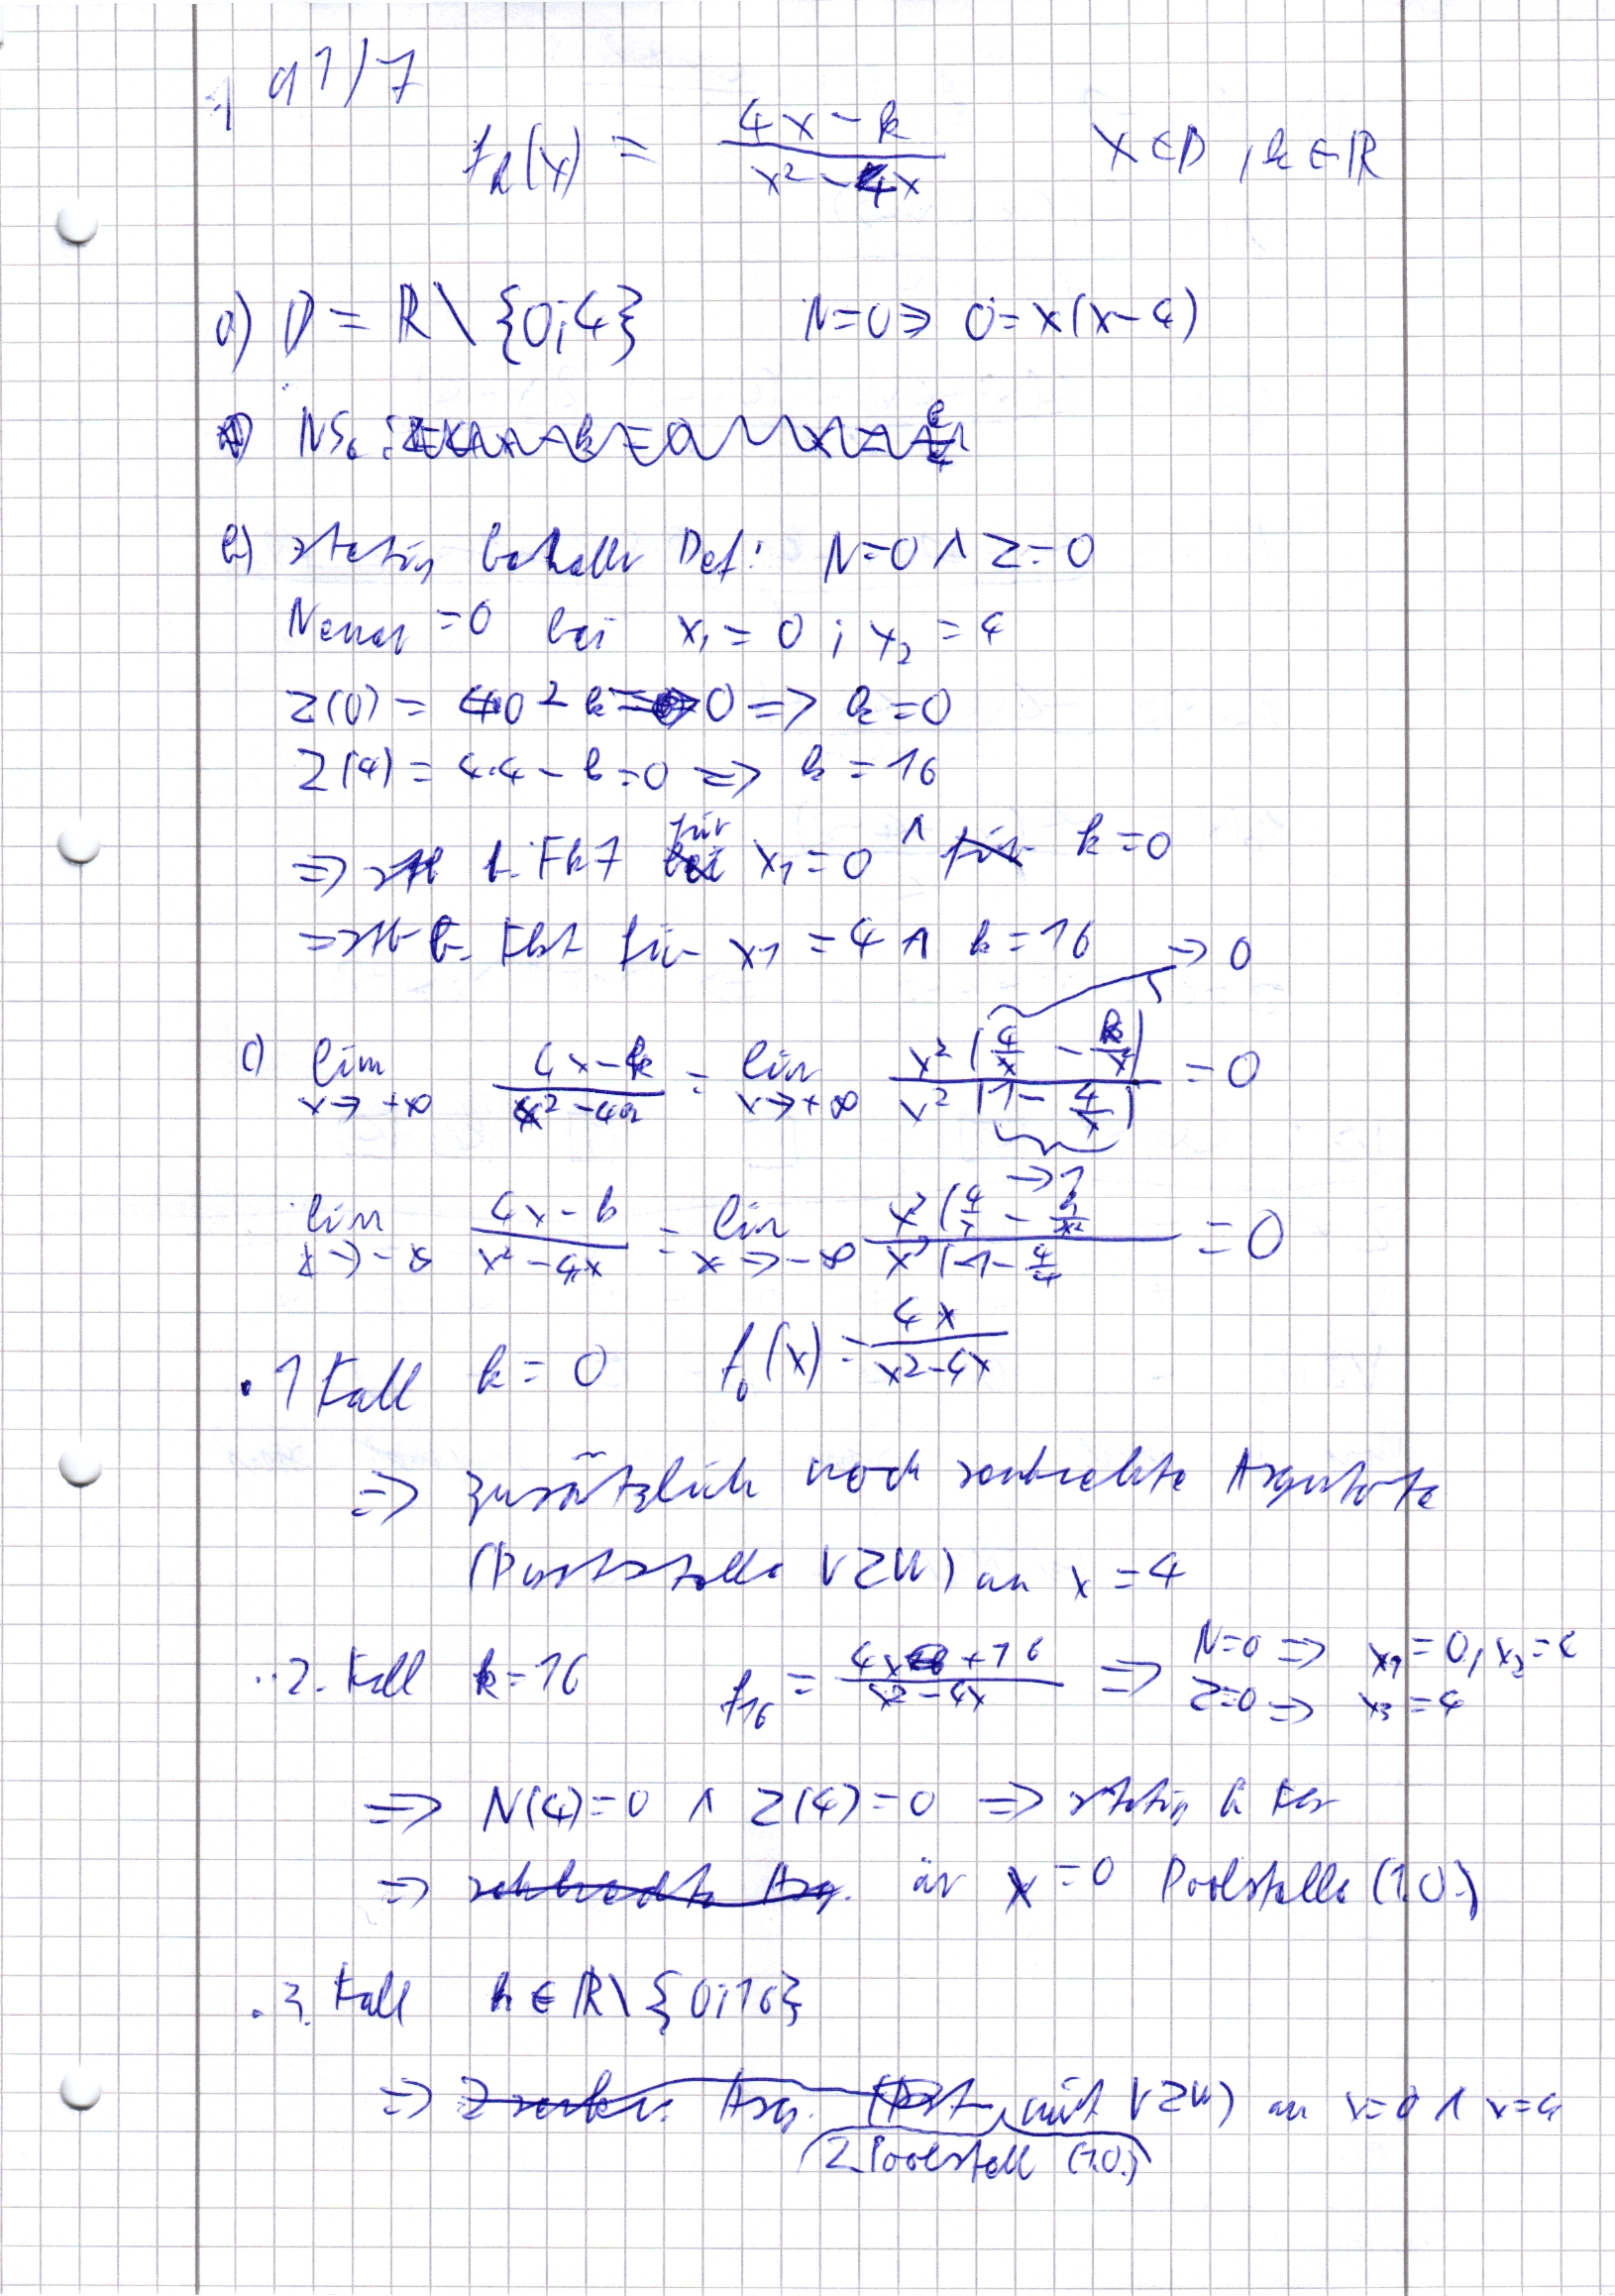 91/7
f_k(x) = (4x - k)/(x² - 4x) x ∈ D, k ∈ ℝ
a) D = ℝ \ {0;4} N=0 ⇒ 0 = x(x-4)
b) stetig behebb Def: N=0 ∧ Z=0
Nenner = 0 bei x₁ = 0 ; x₂ = 4
Z(0) = 4·0 - k = 0 => k = 0
Z(4) = 4·4 - k = 0 => k = 16
=> st b. für x₁ = 0 ∧ k = 0
=> st b. für x₁ = 4 ∧ k = 16
c) lim x→+∞ (4x - k)/(x² - 4x) = lim x→+∞ x²(4/x - k/x²)/x²(1 - 4/x) = 0
→ 0
→ 1
lim x→-∞ (4x - k)/(x² - 4x) = lim x→-∞ x²(4/x - k/x²)/x²(1 - 4/x = 0
· 1 Fall k = 0 f₀(x) = 4x/(x2-4x)
=> zusätzlich noch senkrechte Asymptote
(Polstelle VZW) an x = 4
·· 2. Fall k = 16 f₁₆ = (4x + 16)/(x2 - 4x) => N=0 => x₁ = 0, x₂ = 4
Z=0 => x₃ = 4
=> N(4)=0 ∧ Z(4)=0 => stetig b
=> an x = 0 Poolstelle (1.O.)
. 3. Fall k ∈ ℝ \ {0;16}
=> Asy. mit VZW) an x=0 ∧ x=4
2 Poolstell (1.O.)